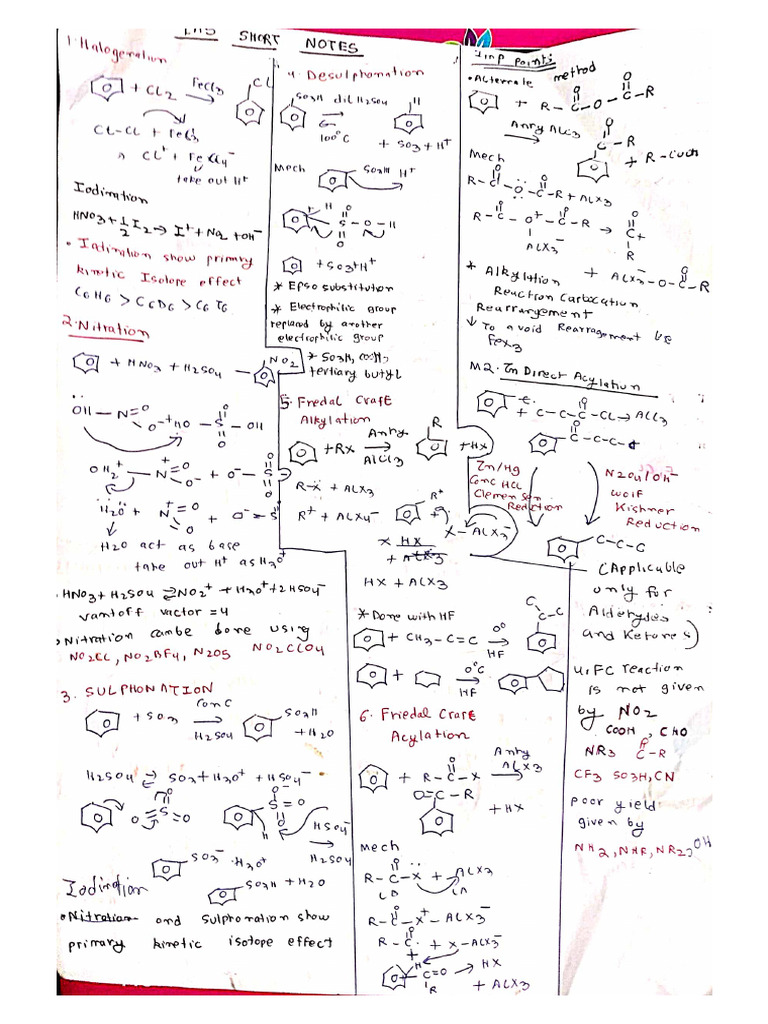 SHORT NOTES
1. Halogenation
+ Cl2 FeCl3
Cl
Cl-Cl + FeCl3
→ Cl+ + FeCl4-
take out H+
Iodination
HNO3 + 1/2 I2 → I+ + NO2 + OH-
• Iodination show primary
kinetic Isotope effect
C6H6 > C6D6 > C6T6
2. Nitration
+ HNO3 + H2SO4
NO2
H2O act as base
take out H+ as H3O+
. HNO3 + H2SO4 ⇌ NO2+ + H3O+ + 2HSO4-
vantoff vactor = 4
• Nitration can be done using
NO2Cl, NO2BF4, N2O5 NO2ClO4
3. SULPHONATION
+ SO3 conC
H2SO4
SO3H
+ H2O
H2SO4 ⇌ SO3 + H3O+ + HSO4-
HSO4-
H2SO4
SO3- H3O+
SO3H + H2O
Iodination
• Nitration and sulphonation show
primary kinetic isotope effect
4. Desulphonation
SO3H dil H2SO4
100°C
H
+ SO3 + H+
Mech
SO3H H+
+ SO3 + H+
* Epso substitution
* Electrophilic group
replaced by another
electrophilic group
* SO3H, COOH,
tertiary butyl
5. Fredal Craft
Alkylation
+ RX Anhy
AlCl3
R
+ HX
R-X + AlX3
R+ + AlX4-
R+
X-AlX3-
HX + AlX3
* Done with HF
+ CH3-C=C 0°
HF
C-C
C
+ 0°C
HF
6. Friedal Craft
Acylation
+ R-C-X Anhy
AlX3
O=C-R
+ HX
Mech
R-C-X + AlX3
R-C-X+-AlX3-
R-C + X-AlX3-
C=O → HX
R + AlX3
4 Imp Points
• Alternate method
+ R-C-O-C-R
Anhy AlCl3
C-R
+ R-COOH
Mech
R-C-O-C-R + AlX3
R-C-O+-C-R →
AlX3-
C+
R
+ AlX3-O-C-R
* Alkylation
Reaction Carbocation
Rearrangement
↓ To avoid Rearragement use
FeX3
M2. In Direct Acylation
+ C-C-C-Cl → AlCl3
C-C-C
Zn/Hg
Conc HCl
Clemensen
Reduction
N2O4/OH-
Wolf
Kishner
Reduction
C-C-C
(Applicable
only for
Aldehydes
and Ketones)
4. FC reaction
is not given
by NO2
COOH, CHO
NR3 C-R
CF3 SO3H, CN
poor yield
given by
NH2, NHR, NR2, OH